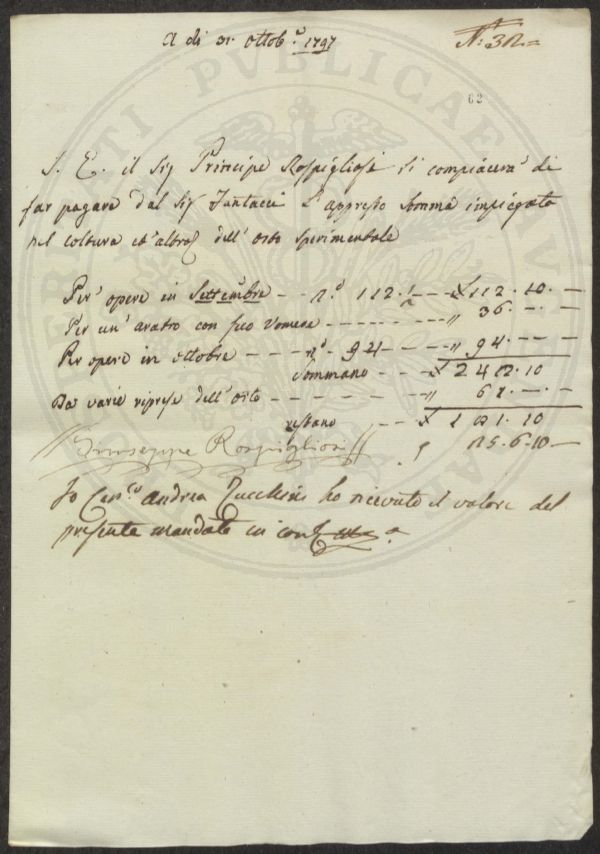 A di 31 Ottob.e 1797
N.° 32=
62
S. E. il Sig Principe Rospigliosi si compiacerà di
far pagare dal Sig Fantacci l'appresso Somma impiegata
nel coltura ed altro dell'Orto Sperimentale
Per opere in Settembre - - n.° 112.½ - - £ 112.10.—
Per un' aratro con suo Vomere - - - - - - " 36.—.—
Per opere in ottobre - - - - n.° 94 - - - " 94.—.—
Sommano - - - £ 242.10
Da varie riprese dell'Orto - - - - - - - " 61.—.—
restano - - £ 181.10
Giuseppe Rospigliosi
25.6.10—
Io Can.co Andrea Zucchini ho ricevuto il valore del
presente mandato in